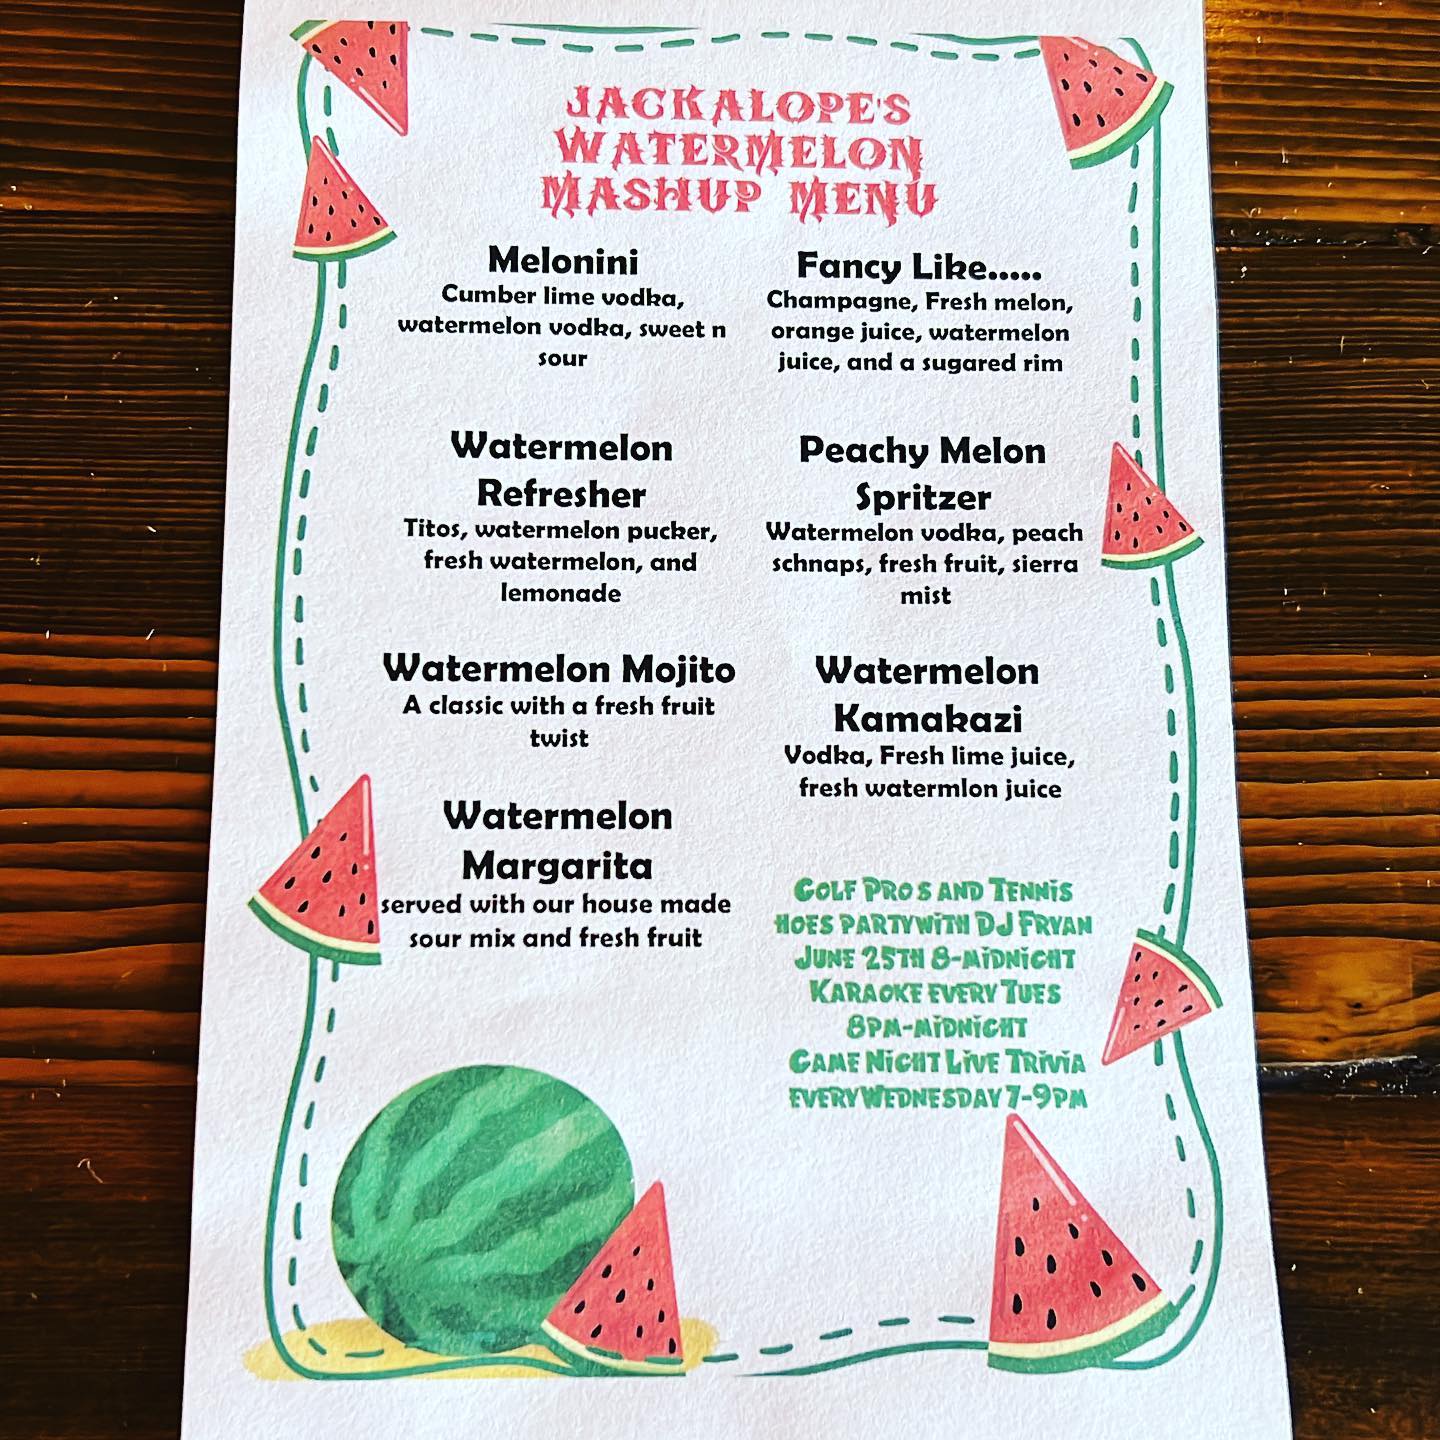 JACKALOPE'S
WATERMELON
MASHUP MENU
Melonini
Cumber lime vodka,
watermelon vodka, sweet n
sour
Watermelon
Refresher
Titos, watermelon pucker,
fresh watermelon, and
lemonade
Watermelon Mojito
A classic with a fresh fruit
twist
Watermelon
Margarita
served with our house made
sour mix and fresh fruit
Fancy Like.....
Champagne, Fresh melon,
orange juice, watermelon
juice, and a sugared rim
Peachy Melon
Spritzer
Watermelon vodka, peach
schnaps, fresh fruit, sierra
mist
Watermelon
Kamakazi
Vodka, Fresh lime juice,
fresh watermlon juice
Golf Pro s and Tennis
hoes party with DJ Fryan
June 25th 8-midnight
Karaoke every Tues
8pm-midnight
Game Night Live Trivia
every Wednesday 7-9pm